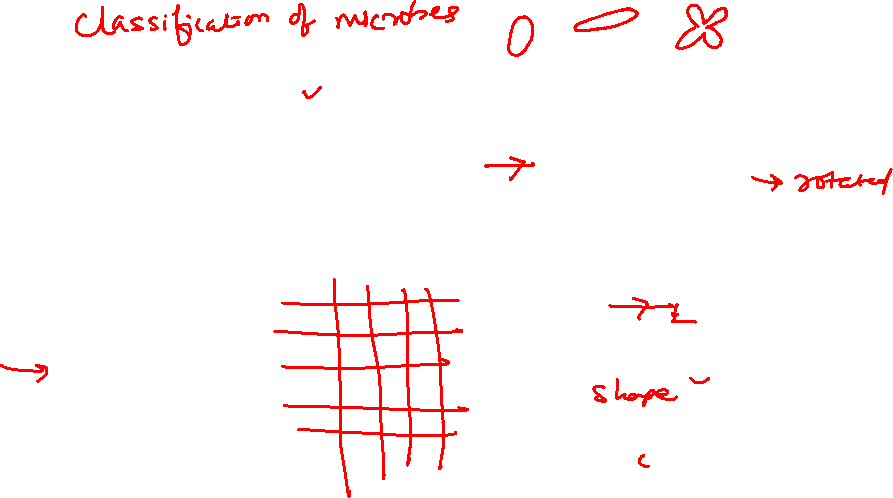 Classification of microbes
→ rotated
shape